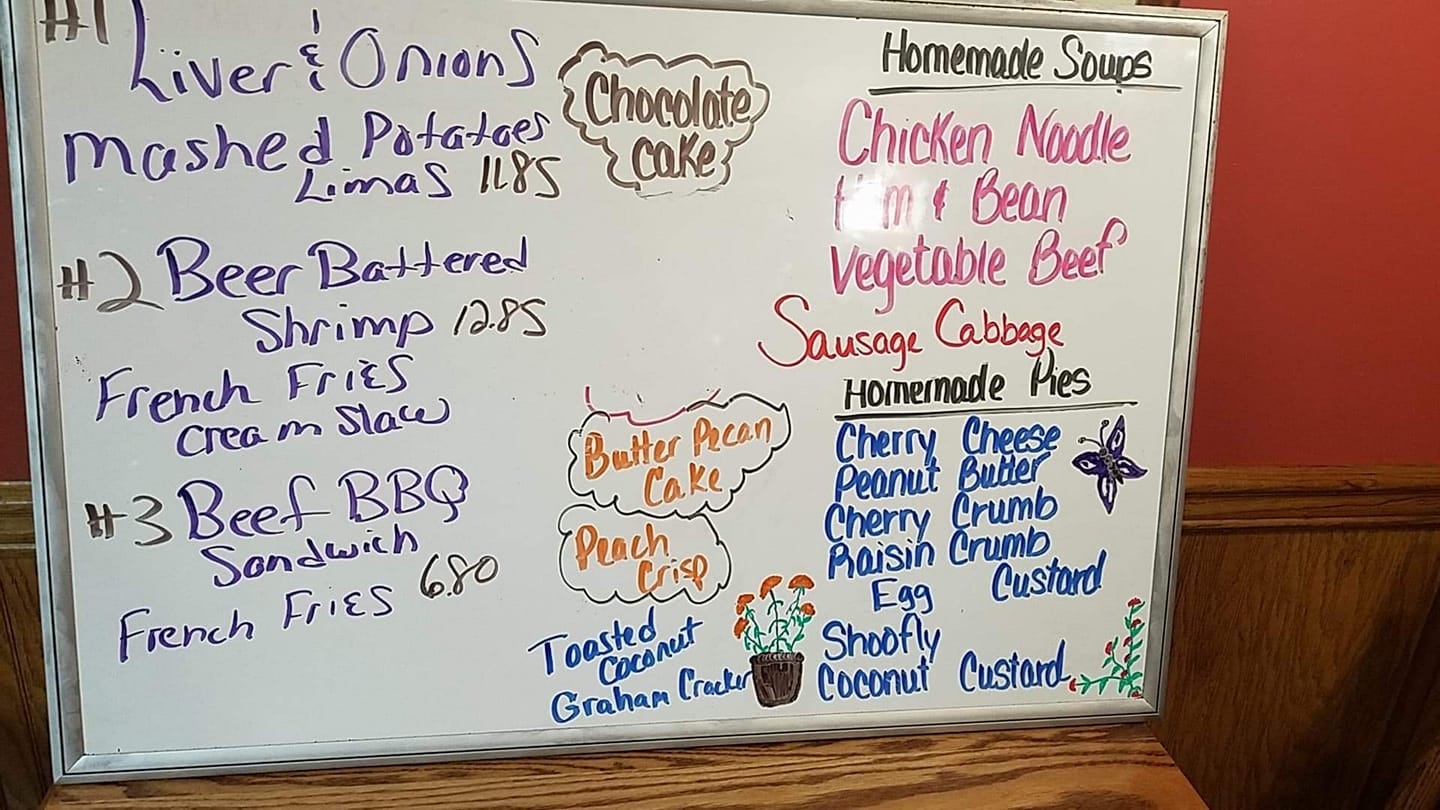 #1
Liver & Onions
Mashed Potatoes
Limas 11.85
#2 Beer Battered
Shrimp 12.85
French Fries
Cream Slaw
#3 Beef BBQ
Sandwich
French Fries 6.80
Chocolate
Cake
Butter Pecan
Cake
Peach
Crisp
Toasted
Coconut
Graham Cracker
Homemade Soups
Chicken Noodle
Ham & Bean
Vegetable Beef
Sausage Cabbage
Homemade Pies
Cherry Cheese
Peanut Butter
Cherry Crumb
Raisin Crumb
Egg Custard
Shoofly
Coconut Custard